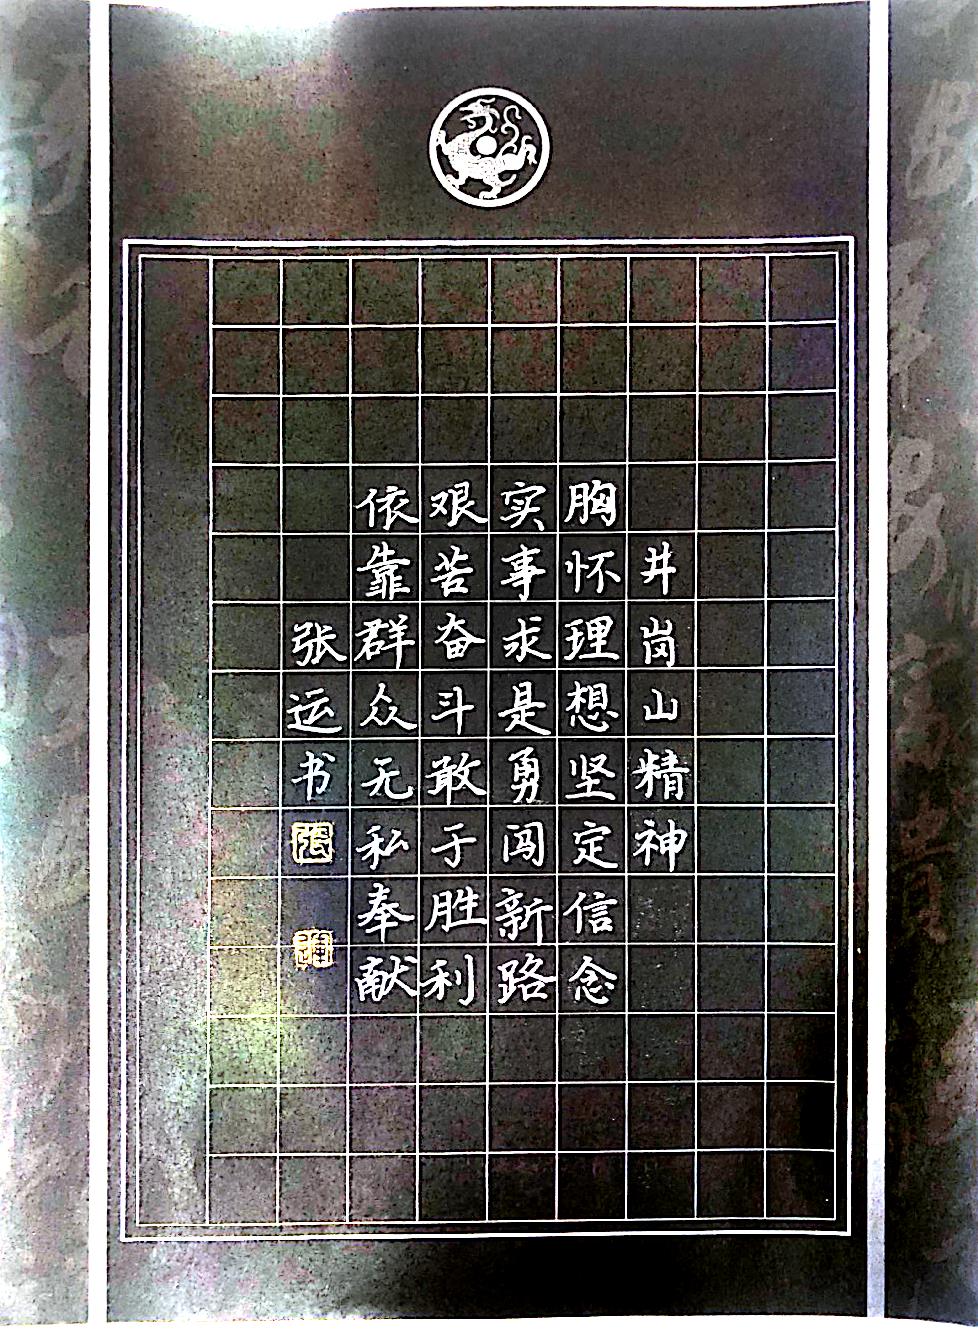 井岗山精神
胸怀理想坚定信念
实事求是勇闯新路
艰苦奋斗敢于胜利
依靠群众无私奉献
张运书
張